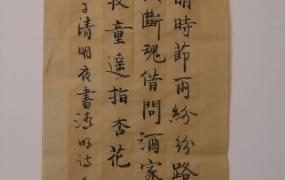 明時節雨紛紛路
斷魂借問酒家
牧童遥指杏花
子清明夜書清明诗